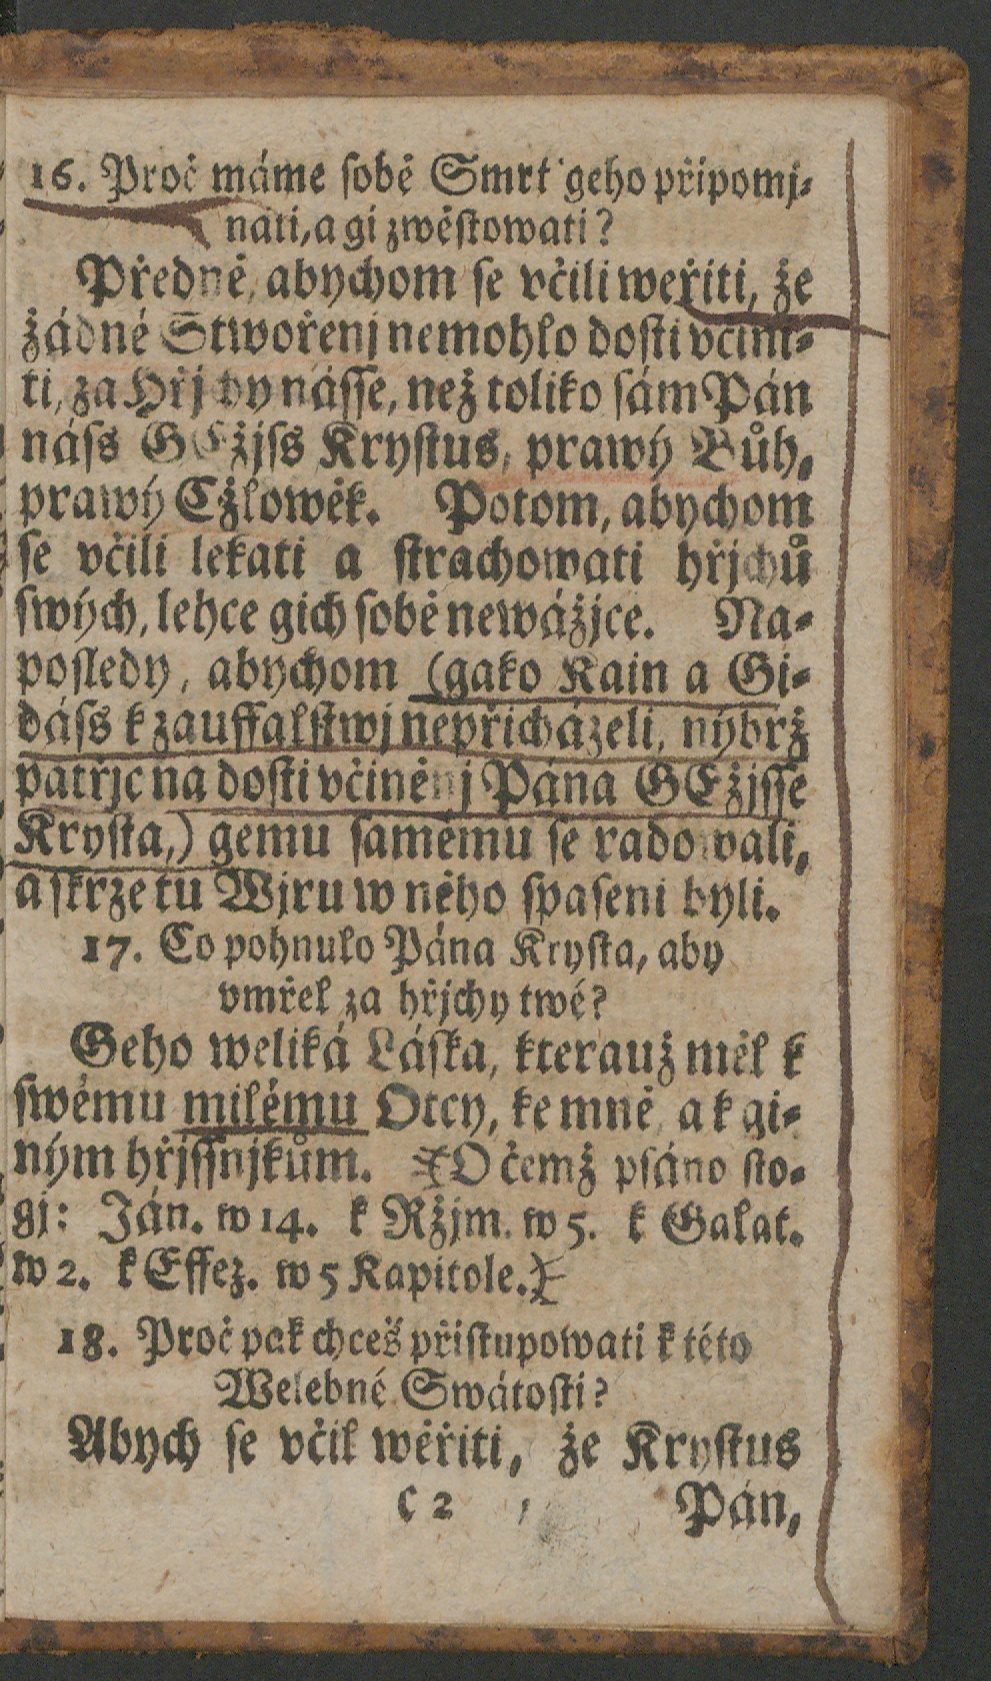 16. Proč máme sobě Smrt geho připomj-
nati, a gi zwěstowati?
Předně, abychom se včili weřiti, že
žádné Stwořenj nemohlo dosti včini-
ti, za Hřjchy násse, než toliko sám Pán
náss GEžjss Krystus, prawý Bůh,
prawý Cžlowěk. Potom, abychom
se včili lekati a strachowati hřjchů
swých, lehce gich sobě newážjce. Na-
posledy, abychom (gako Kain a Gi-
dáss k zauffalstwj nepřicházeli, nýbrž
patřjc na dosti včiněnj Pána GEžjsse
Krysta,) gemu samému se radowali,
a skrze tu Wjru w něho spaseni byli.
17. Co pohnulo Pána Krysta, aby
vmřel za hřjchy twé?
Geho weliká Láska, kterauž měl k
swému milému Otcy, ke mně, a k gi-
ným hřjssnjkům. O čemž psáno sto-
gj: Ján. w 14. k Ržjm. w 5. k Galat.
w 2. k Effez. w 5 Kapitole.
18. Proč pak chceš přistupowati k této
Welebné Swátosti?
Abych se včil wěřiti, že Krystus
C 2 Pán,